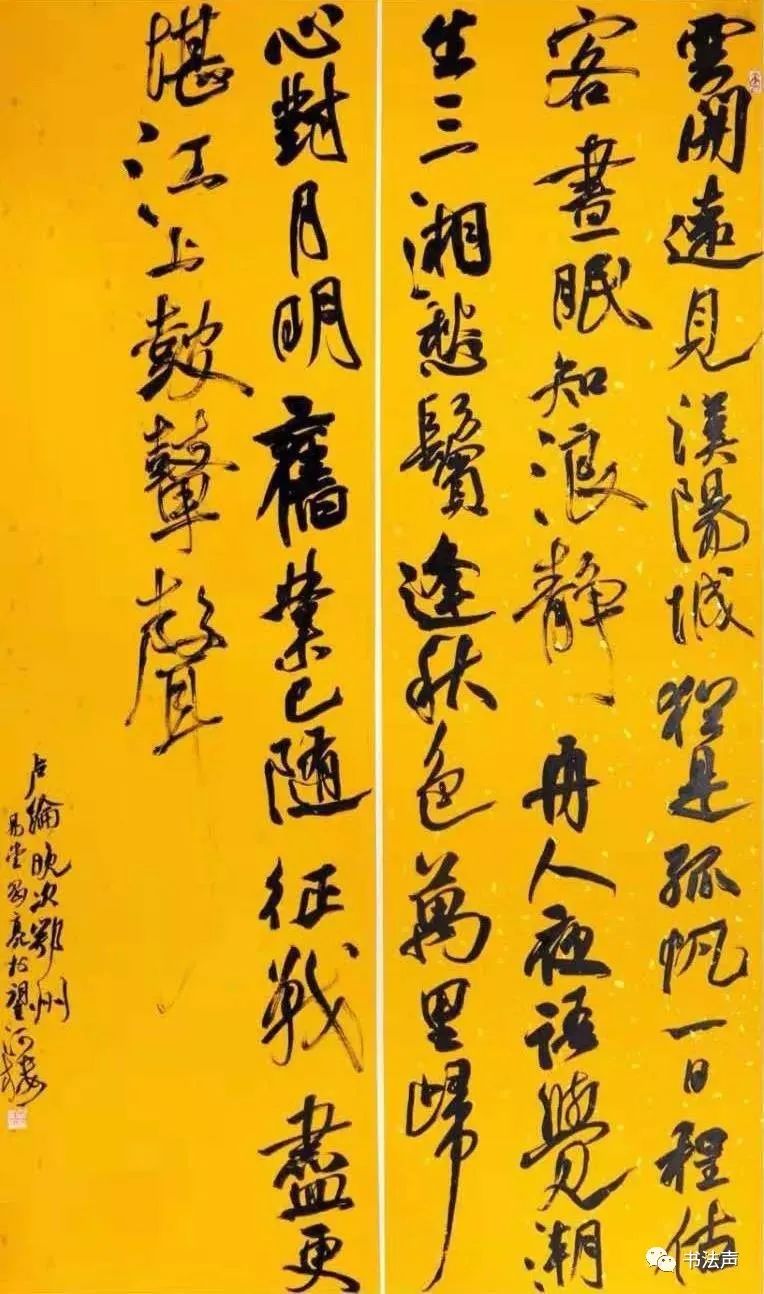 雲開遠見漢陽城猶是孤帆一日程估
客晝眠知浪静舟人夜語覺潮
生三湘愁鬢逢秋色萬里歸
心對月明舊業已隨征戰盡更
堪江上鼓鼙聲
卢綸晚次鄂州
易堂亮於望河楼
书法声